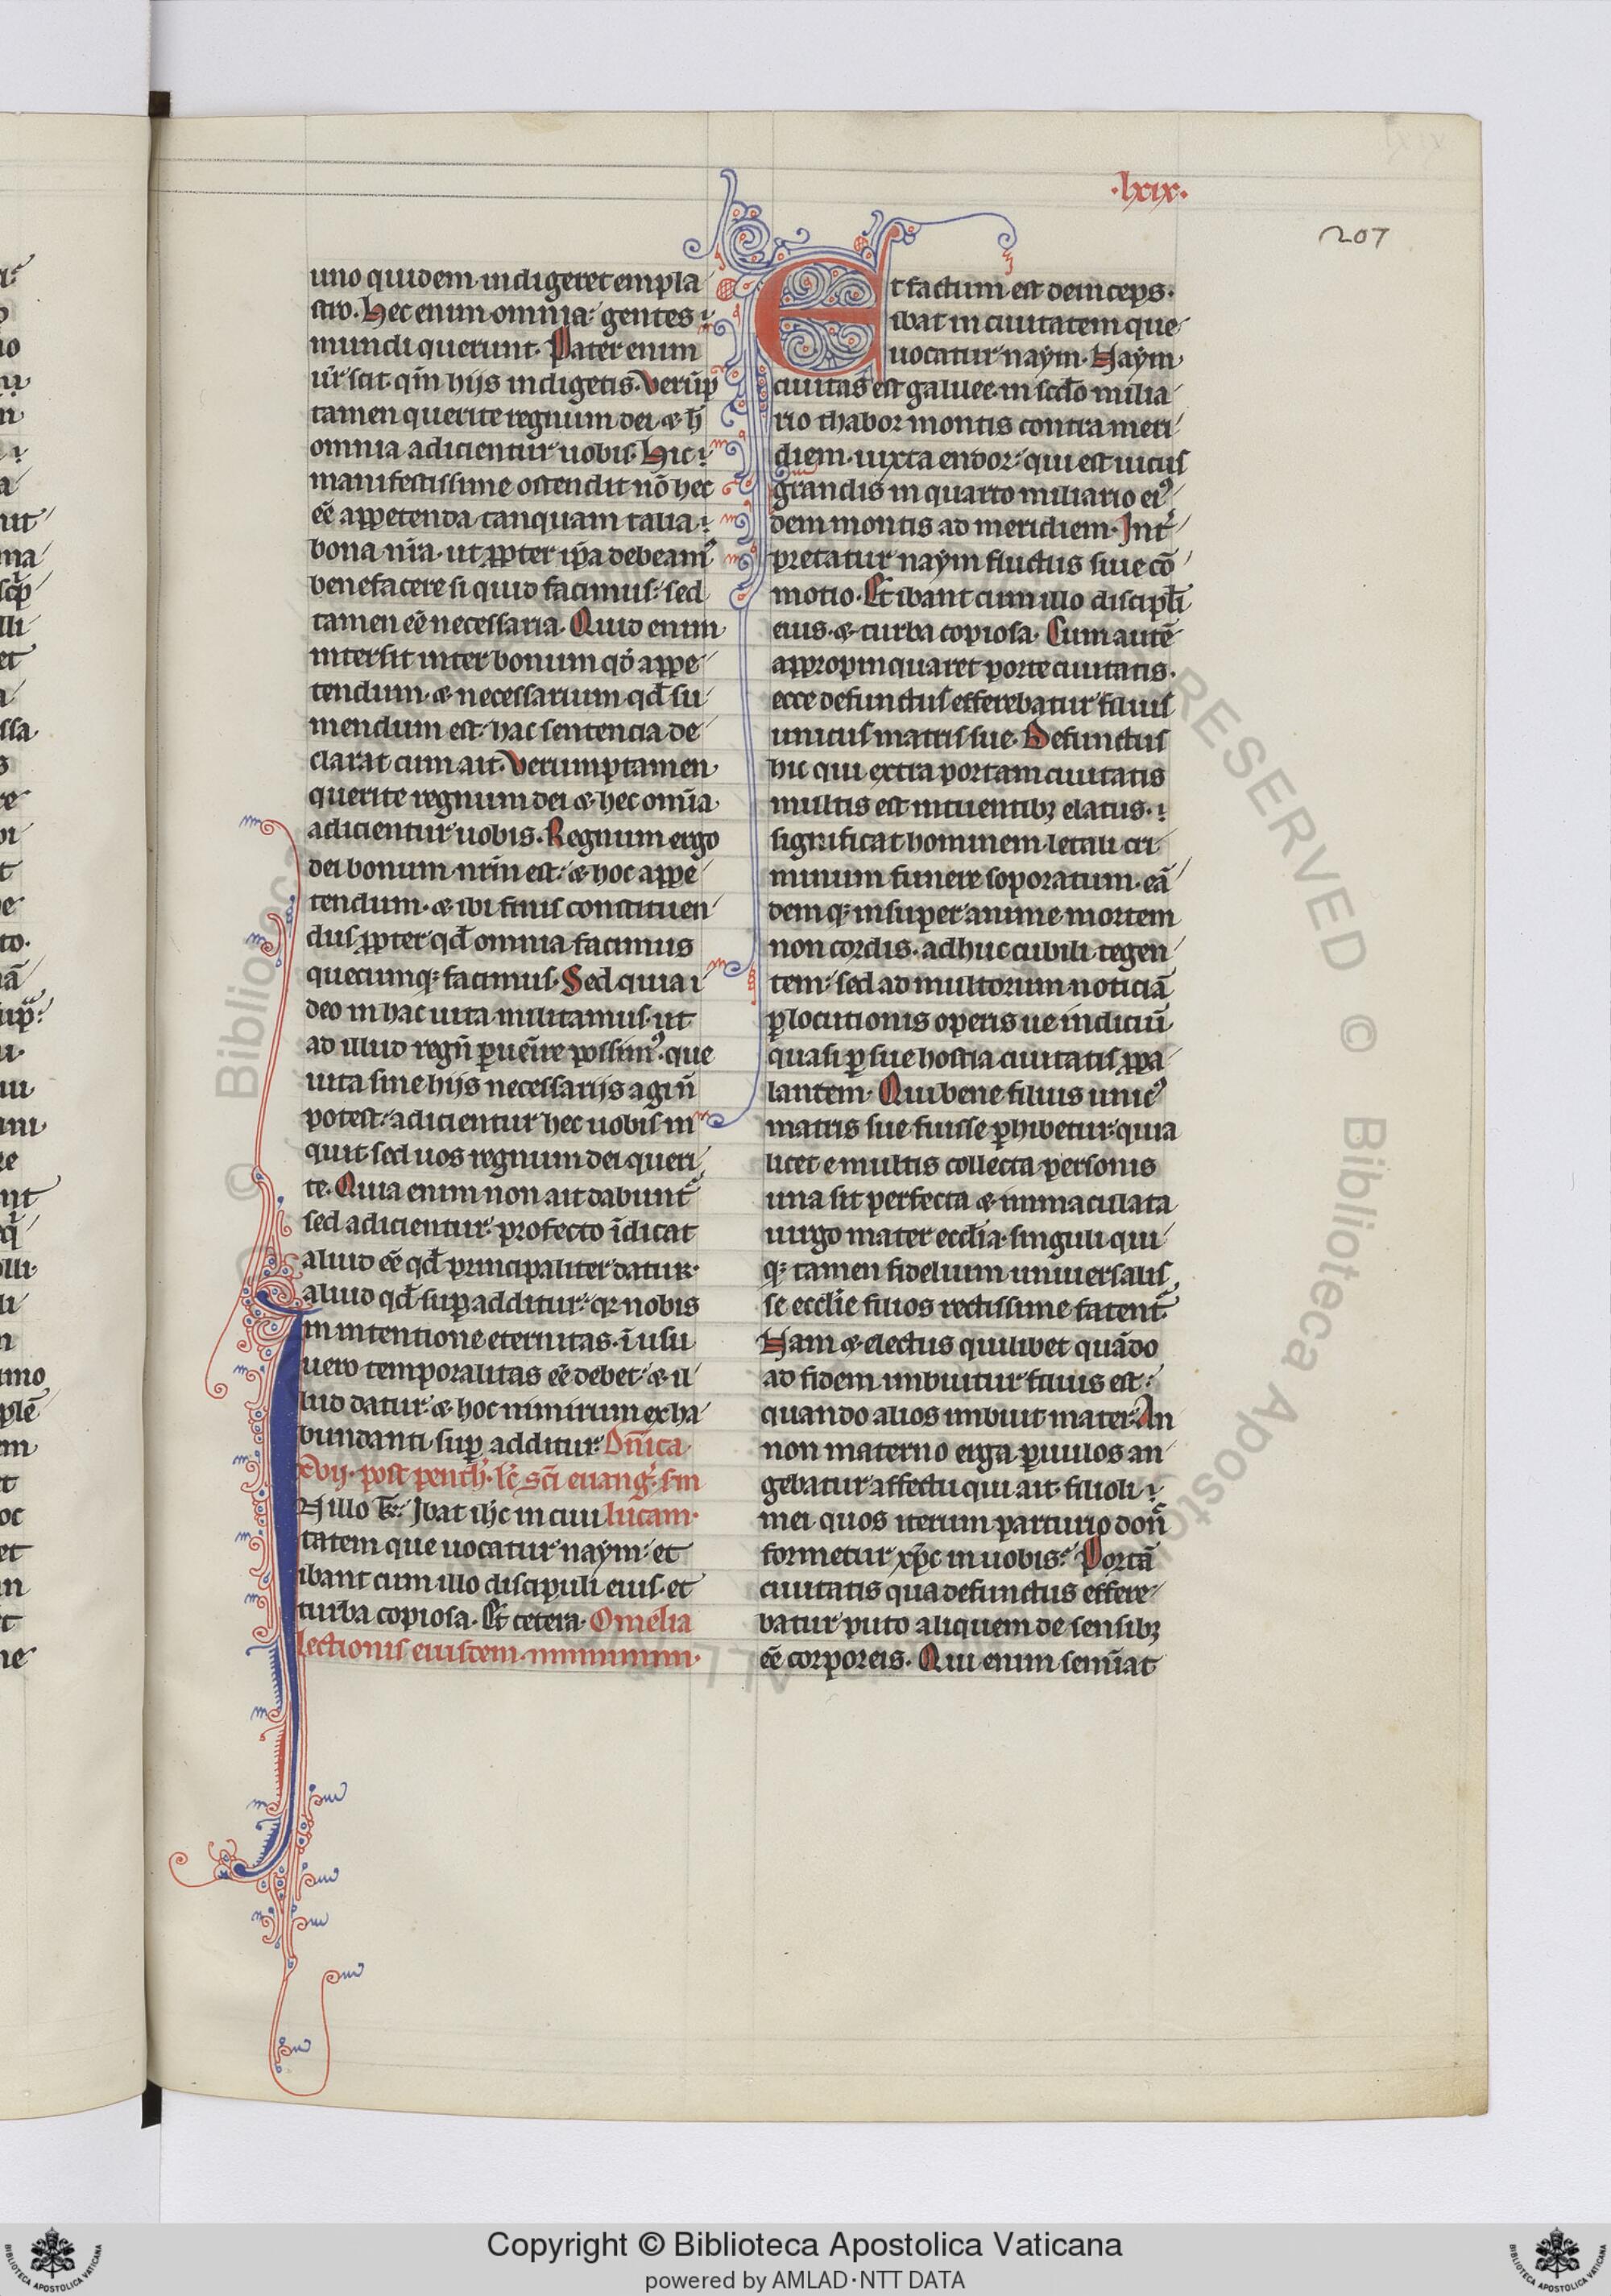 ·lxix·
207
uno quidem indigeret empla
stro. Hec enim omnia gentes
mundi querunt. Pater enim
ur̄ scit qm̄ hijs indigetis. Verūp
tamen querite regnum dei ⁊ h̄
omnia adicientur uobis. Hic
manifestissime ostendit nō hec
eē appetenda tanquam talia
bona nr̄a. ut ꝓpter ip̄a debeamꝰ
benefacere si quid facimus: sed
tamen eē necessaria. Quid enim
intersit inter bonum qd̄ appe
tendum ⁊ necessarium qd̄ su
mendum est: hac sentencia de
clarat cum ait. Verumptamen
querite regnum dei ⁊ hec omīa
adicientur uobis. Regnum ergo
dei bonum nrm̄ est: ⁊ hoc appe
tendum. ⁊ ibi finis constituen
dus ꝓpter qd̄ omnia facimus
quecumqꝫ facimus. Sed quia i
deo in hac uita militamus. ut
ad illud regn̄ ꝑuenīre possimꝰ. que
uita sine hijs necessarijs agi n̄
potest: adicientur hec uobis in
quit sed uos regnum dei queri
te. Quia enim non ait dabunt᷑
sed adicientur: profecto īdicat
aliud eē qd̄ principaliter datur.
aliud qd̄ suꝑ additur: qꝛ nobis
in intentione eternitas. ī usu
uero temporalitas eē debet: ⁊ il
lud datur: ⁊ hoc nimirum ex ha
bundanti suꝑ additur. Dn̄ica
xvij. post penth̄. lc̄ sc̄i euanḡ. s̄m
N illo t̄. Ibat ih̄c in ciui lucam.
tatem que uocatur naym: et
ibant cum illo discipuli eius. et
turba copiosa. Et cetera. Omelia
lectionis eiusdem
Et factum est deinceps.
ibat in ciuitatem que
uocatur naym. Naym
ciuitas est galilee. in scd̄o milia
rio thabor montis contra meri
diem. iuxta endor: qui est uicus
grandis in quarto miliario eiꝰ
dem montis ad meridiem. Int̄
pretatur naym fluctus siue cō
motio. Et ibant cum illo discipl̄i
eius. ⁊ turba copiosa. Cum autē
appropinquaret porte ciuitatis.
ecce defunctus efferebatur filius
unicus matris sue. Defunctus
hic qui extra portam ciuitatis
multis est intuentibꝫ elatus.
significat hominem letali cri
minum funere soporatum. eā
demqꝫ insuper anime mortem
non cordis. adhuc cubili tegen
tem: sed ad multorum noticiā
ꝑ locutionis operis ue indiciū
quasi ꝑ sue hostia ciuitatis ꝓpa
lantem. Qui bene filius unicꝰ
matris sue fuisse ꝑhibetur: quia
licet e multis collecta personis
una sit perfecta ⁊ immaculata
uirgo mater ecclīa. singuli qui
qꝫ tamen fidelium uniuersalis
se ecclīe filios rectissime fatent᷑
Nam ⁊ electus quilibet quādo
ad fidem imbuitur filius est:
quando alios imbuit mater. An
non materno erga paruulos an
gebatur affectu qui ait. filioli
mei quos iterum parturio don̄
formetur xp̄c in uobis: Portā
ciuitatis qua defunctus effere
batur puto aliquem de sensibꝫ
eē corporeis. Qui enim semīat
Copyright © Biblioteca Apostolica Vaticana
powered by AMLAD·NTT DATA